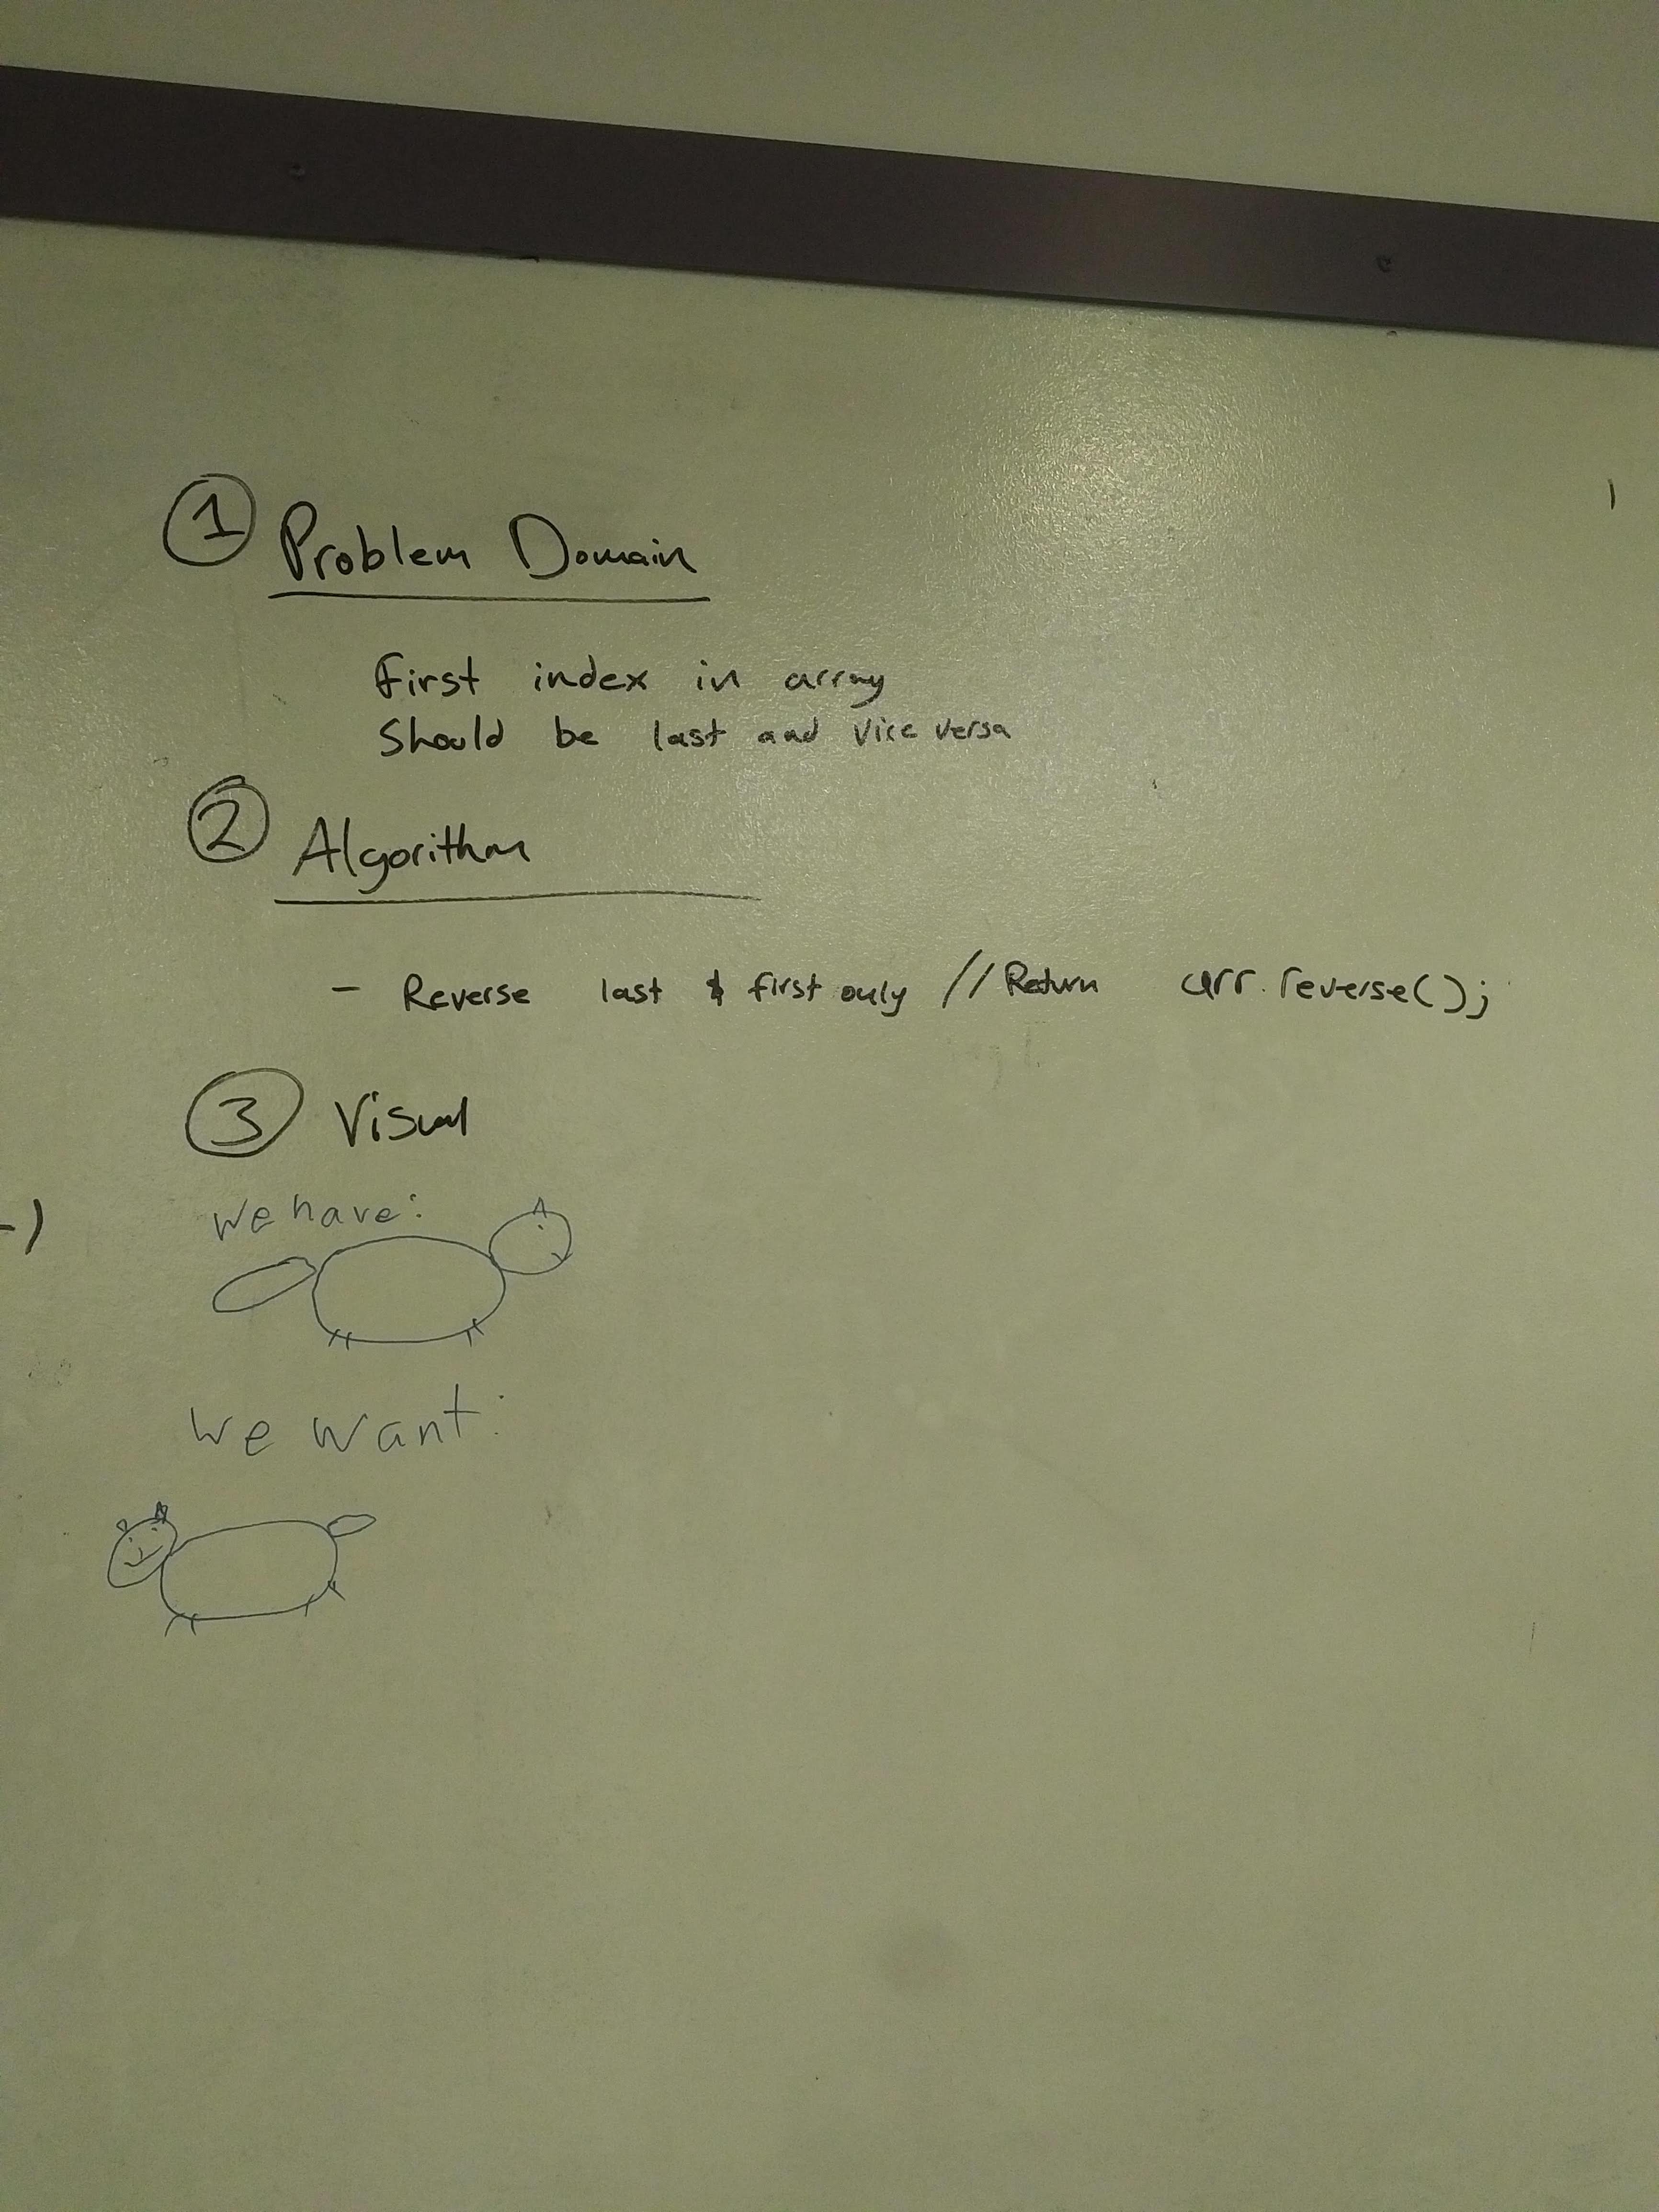 1 Problem Domain
First index in array
Should be last and vice versa
2 Algorithm
- Reverse last & first only // Return arr.reverse();
3 Visual
We have:
We want: